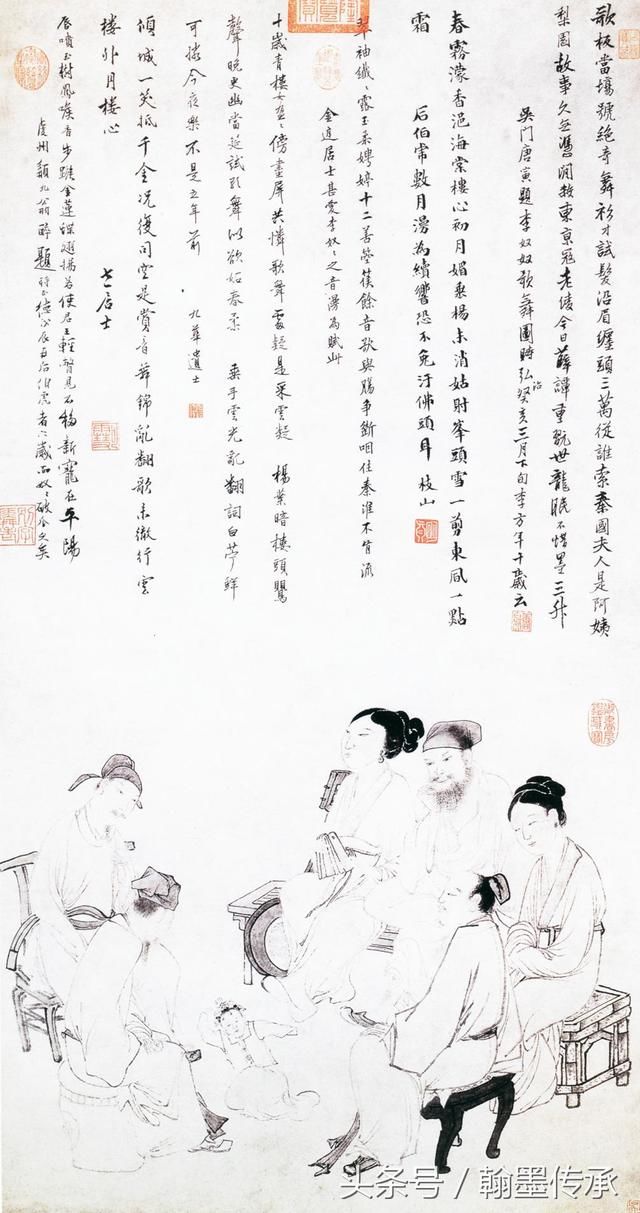 歌板當場號絕奇舞衫才試髮沿眉纏頭三萬從誰索秦國夫人是阿姨
梨園故事久無憑閒教東京老今日薛諱重玩世龍眠不惜墨三升
吳門唐寅題李奴奴歌舞圖時弘治癸亥三月下旬李方年十歲云
春霧濛香浥海棠樓心初月媚垂楊未消姑射峯頭雪一剪東風一點
霜
后伯常數月漫為續響恐不免汙佛頭耳 枝山
翠袖纖纖露玉柔娉婷十二善箜篌餘音欲與腸爭斷咽住秦淮不肯流
金逵居士甚愛李奴奴之音漫為賦此
十歲青樓女盈盈傍畫屏共憐歌舞處疑是采雲凝 楊葉暗樓頭鶯
聲晚更幽當延試歌舞似欲妬春柔 垂手雲光亂翻詞白苧鮮
可憐今夜樂不是立年前
九華遺士
傾城一笑抵千金況復同空是賞音舞錦亂翻歌未徹行雲
樓外月樓心
七居士
唇噴玉樹鳳喉音步躧金蓮蝶翅揚若使君王輕瞥見不移新寵在平陽
虔州九翁醉題
头条号 / 翰墨传承